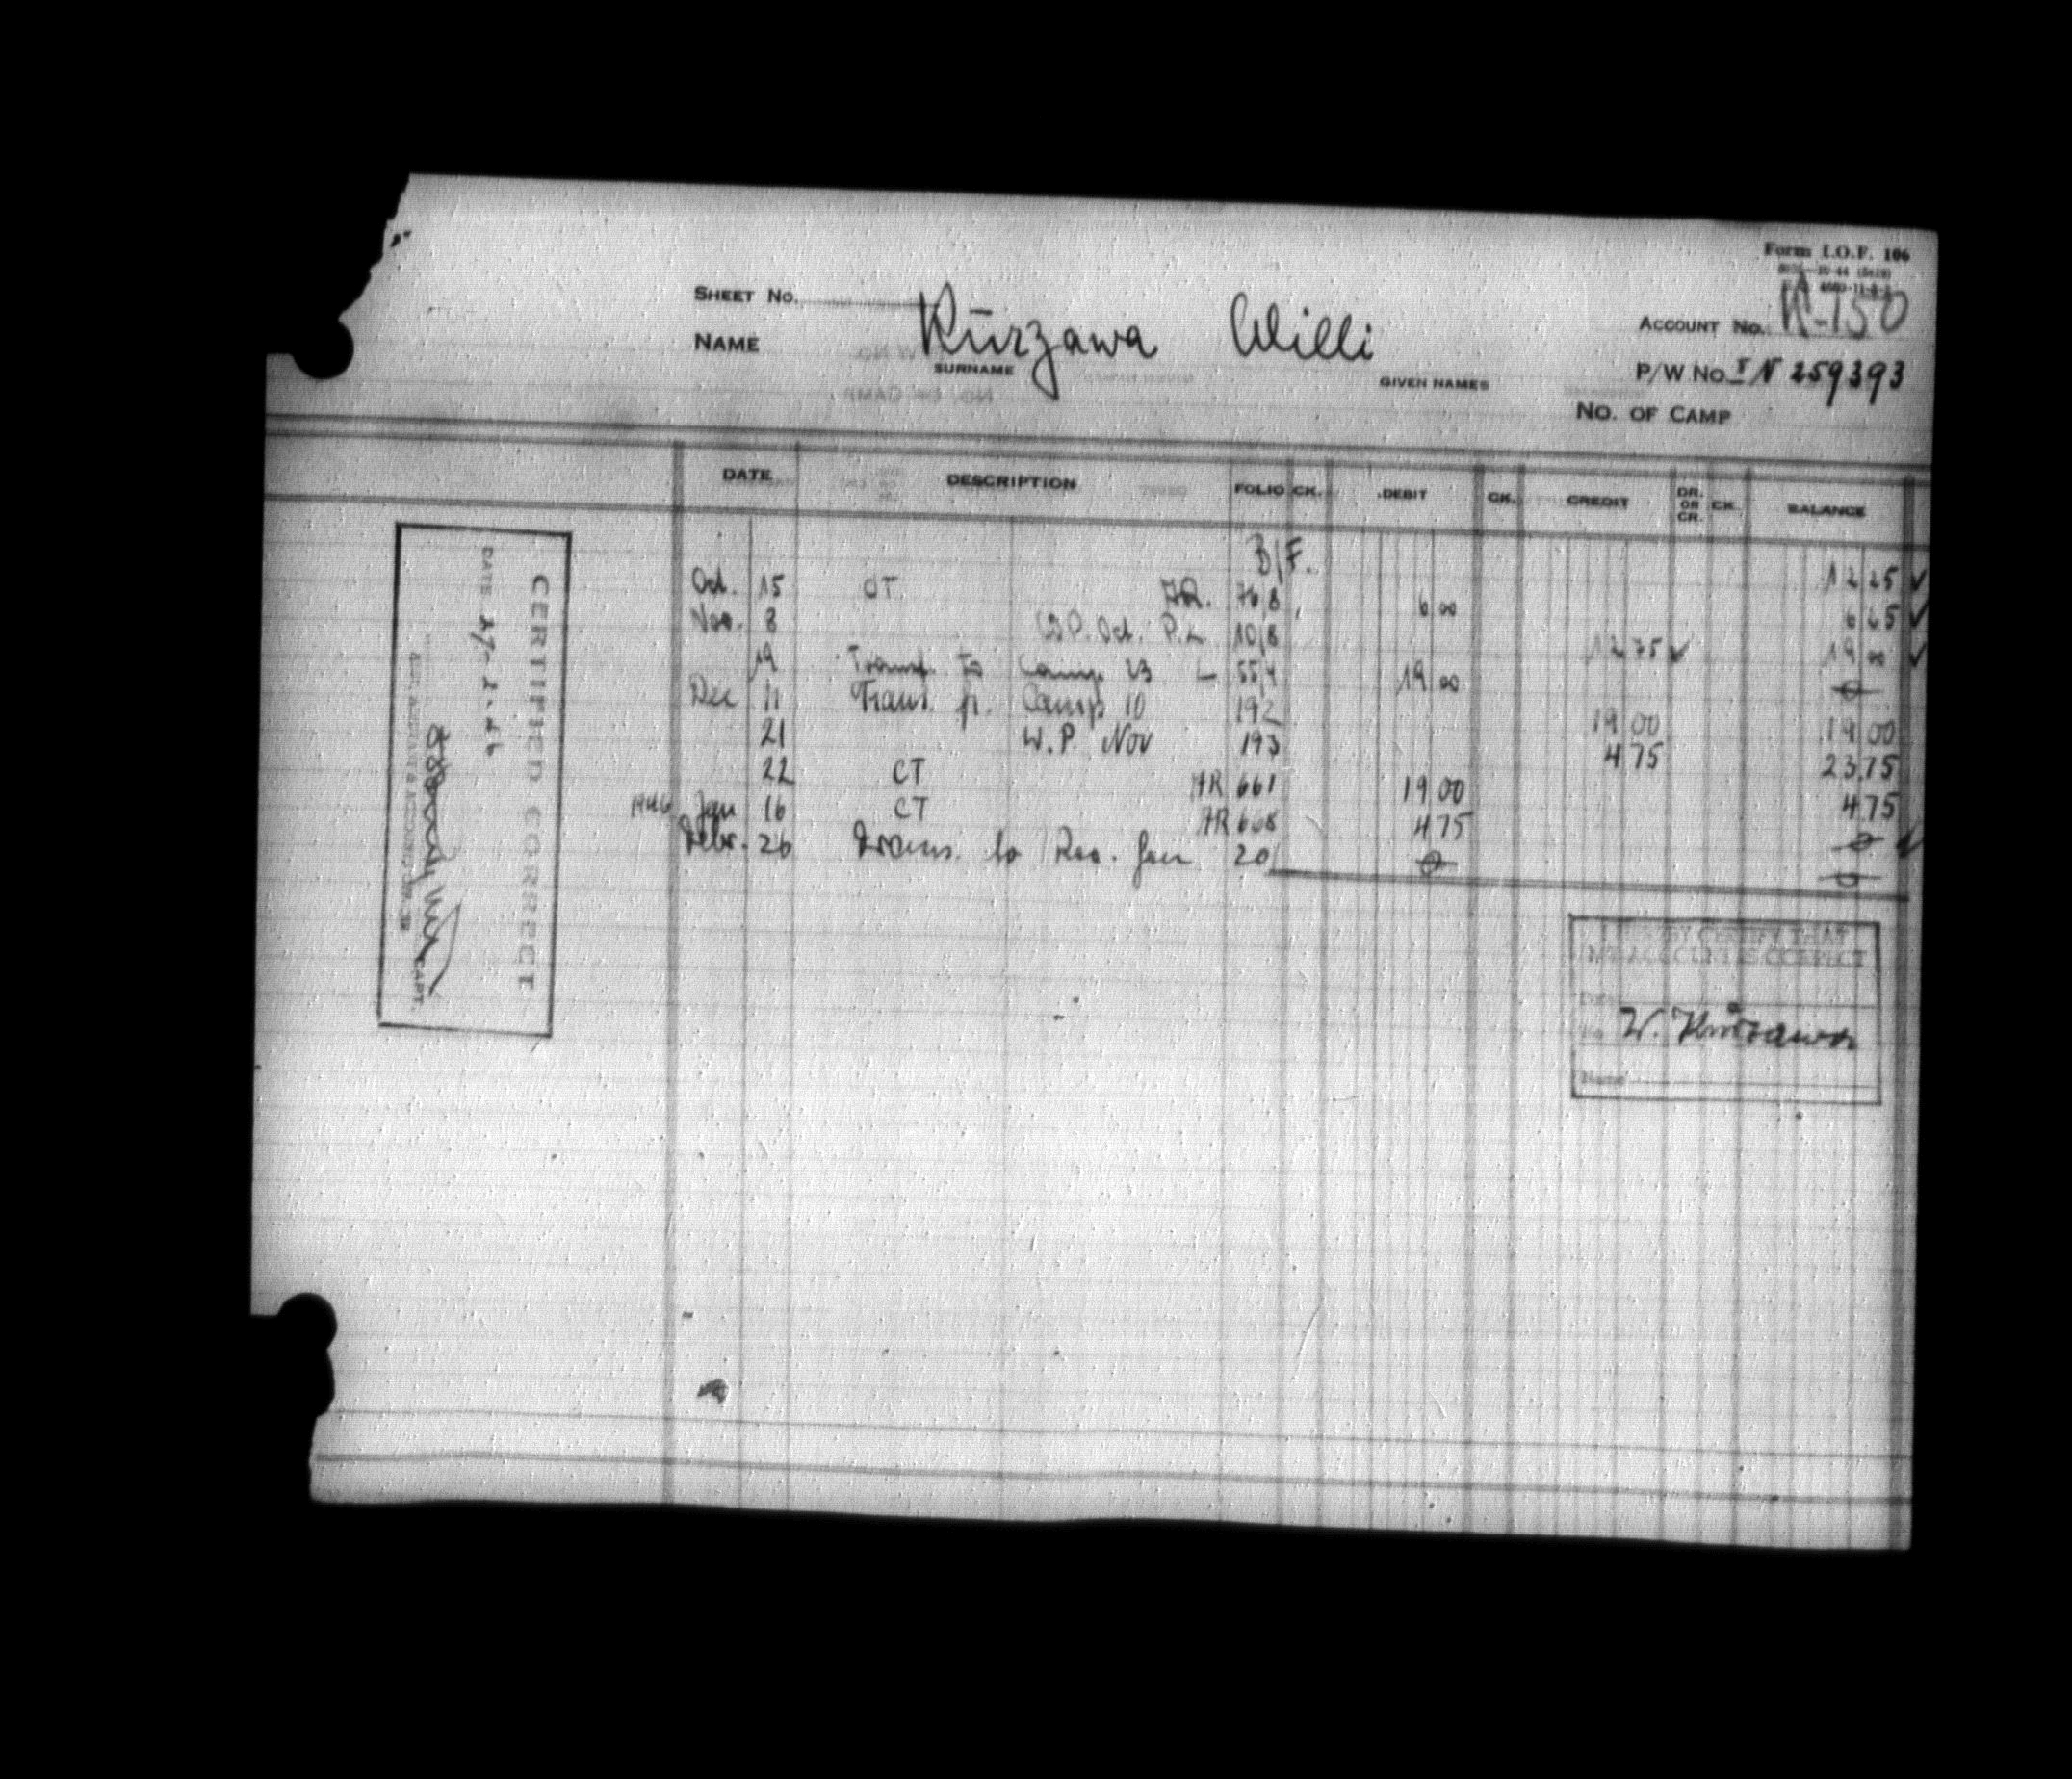 Form I.O.F. 106
SHEET No.
K-150
ACCOUNT No.
NAME Kurzawa Willi
SURNAME GIVEN NAMES
P/W No. 259393
No. OF CAMP
DATE DESCRIPTION FOLIO CK. DEBIT CK. CREDIT DR. OR CR. CK. BALANCE
B/F. 12 25 ✓
Oct. 15 CT AR. 76,8 6 00 6 25 ✓
Nov. 8 W.P. Oct. P.L. 10,8 12 75 ✓ 19 00 ✓
19 Transf. To Camp 23 — 55,4 19 00 0
Dec 11 Trans. fr. Camp 10 192 19 00 19 00
21 W.P. Nov 193 4 75 23.75
22 CT AR 661 19 00 4 75
1946 Jan 16 CT AR 668 4 75 0 ✓
Febr. 26 Trans. to Rec. Gen 20 0 0
CERTIFIED CORRECT
DATE
CAPT.
I HEREBY CERTIFY THAT
THIS ACCOUNT IS CORRECT
Date
No W. Kurzawa
Name